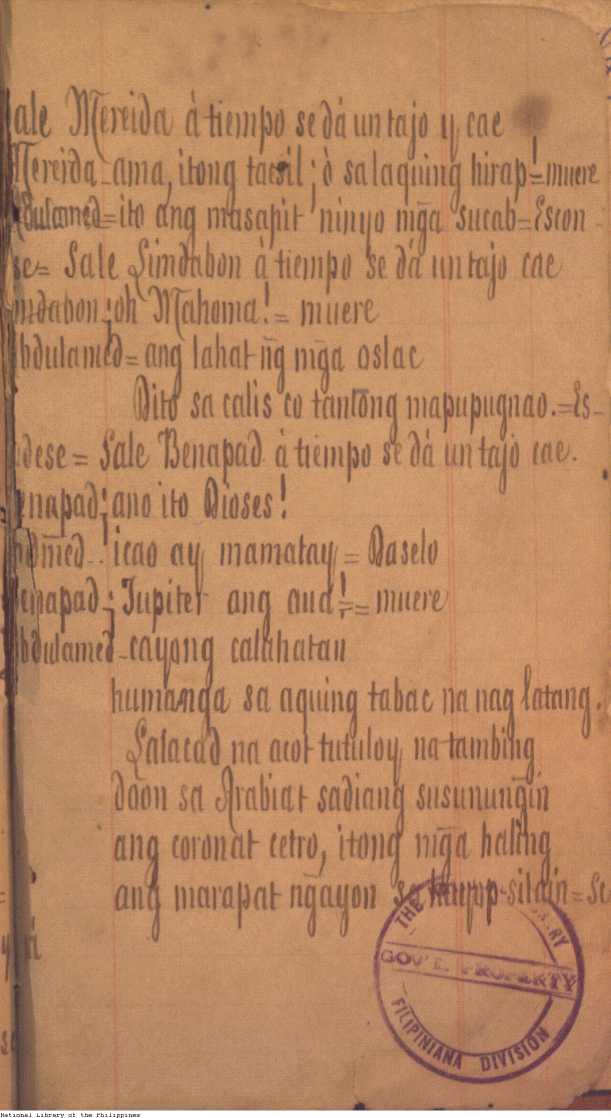 Sale Mereida á tiempo se dá un tajo y cae
Mereida-ama, itong tacsil; ó sa laquing hirap!=muere
Abdulamed=ito ang masapit ninyo mḡa sucab=Escon-
se= Sale Limdabon á tiempo se dá un tajo cae
Limdabon; oh Mahoma!= muere
Abdulamed= ang lahat n̄g mḡa oslac
Dito sa calis co tantong mapupugnao.=Es-
dese= Sale Benapad á tiempo se dá un tajo cae.
Benapad; ano ito Dioses!
icao ay mamatay= Daselo
Benapad; Jupiter ang aua!=muere
Abdulamed-cayong calahatan
humanga sa aquing tabac na nag latang.
Lalacad na acot tutuloy na tambing
doon sa Arabiat sadiang susunun̄gin
ang coronat cetro, itong mḡa haling
ang marapat n̄gayon sa silain=Se
THE
GOV'T. PROPERTY
FILIPINIANA DIVISION
National Library of the Philippines